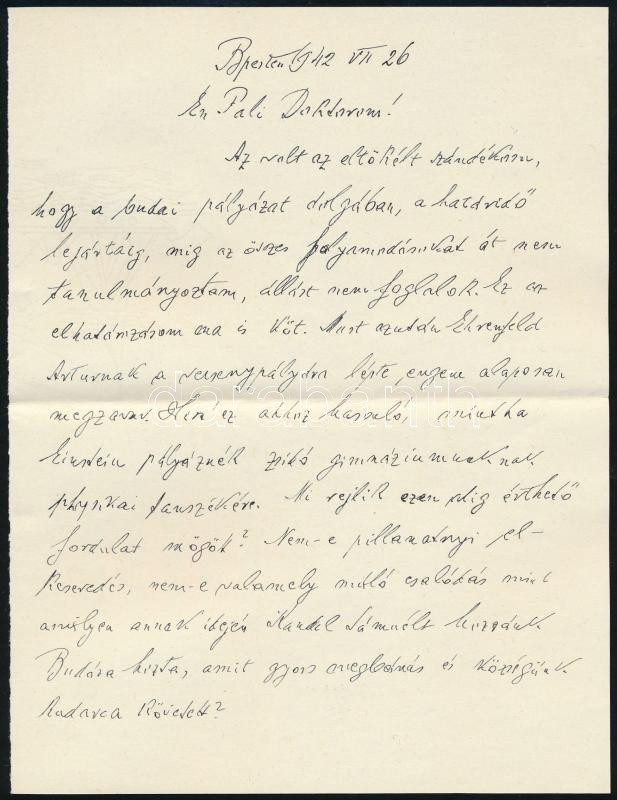 Bpesten 1942 VII 26
Én Pali Doktorom!
Az volt az eltökélt szándékom,
hogy a budai pályázat dolgában, a határidő
lejártáig, mig az összes folyamodásukat át nem
tanulmányoztam, állást nem foglalok. Ez az
elhatározásom ma is köt. Most azután Ehrenfeld
Arturnak a versenypályára lépte, engem alaposan
megzavar. Hisz ez ahhoz hasonló, mintha
Einstein pályáznék zsidó gimnáziumunknak
physikai tanszékére. Mi rejlik ezen alig érthető
fordulat mögött? Nem-e pillanatnyi el-
keseredés, nem-e valamely múló csalódás mint
amilyen annak idején Kandel Sámuelt hozzánk
Budára hozta, amit gyors megbánás és községünk
kudarca követett?
darabanth